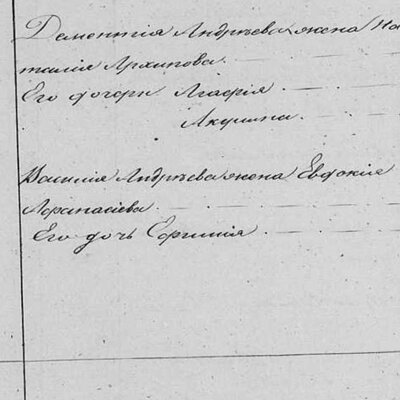 Дементія Андрѣева жена На
талія Архипова.
Его дочери Агафія.
Акулина.
Василія Андрѣева жена Евдокія
Афанасіева.
Его дочь